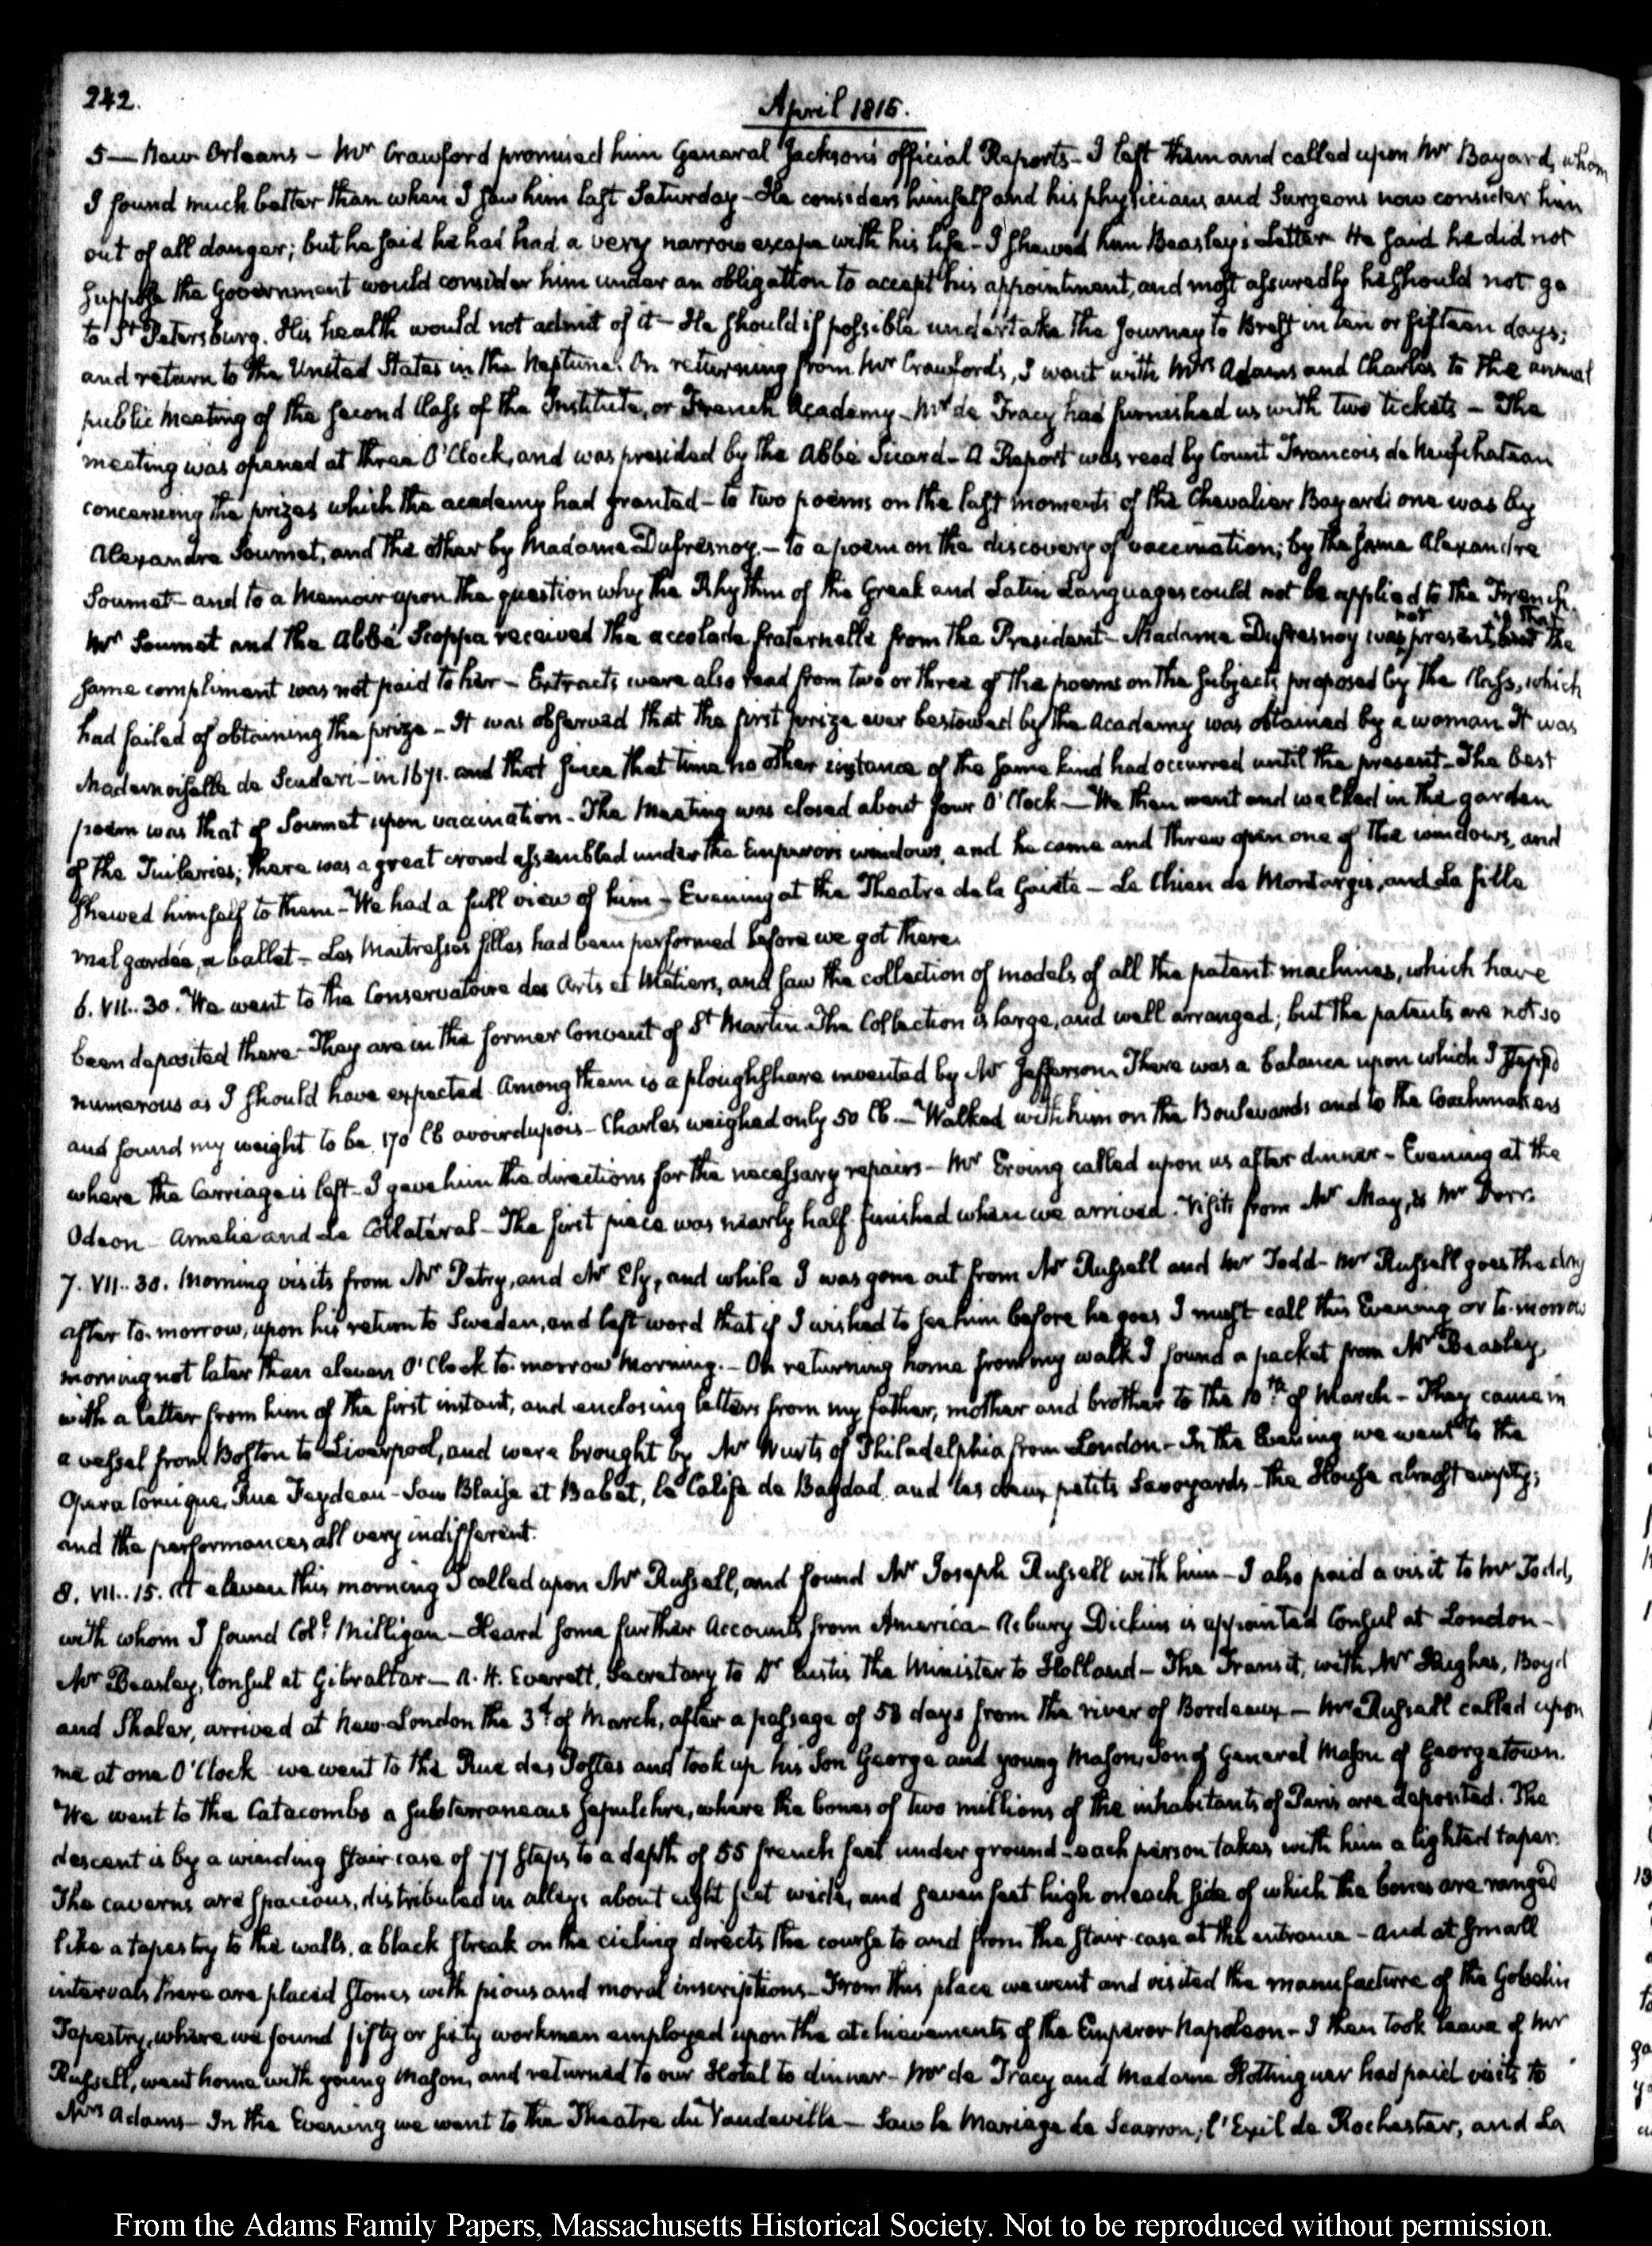 242.
April 1815.
5 — New Orleans — Mr Crawford promised him General Jackson's official Reports — I left them and called upon Mr Bayard, whom
I found much better than when I saw him last Saturday — He considers himself and his physicians and Surgeons now consider him
out of all danger; but he said he had had a very narrow escape with his life — I shewed him Beasley's Letter He said he did not
suppose the Government would consider him under an obligation to accept his appointment, and most assuredly he should not go
to St Petersburg. His health would not admit of it — He should if possible undertake the Journey to Brest in ten or fifteen days;
and return to the United States in the Neptune. On returning from Mr Crawford's, I went with Mrs Adams and Charles to the annual
public meeting of the second Class of the Institute, or French Academy — Mr de Tracy had furnished us with two tickets — The
meeting was opened at three O'Clock, and was presided by the Abbé Sicard — A Report was read by Count Francois de Neufchateau
concerning the prizes which the academy had granted — to two poems on the last moments of the Chevalier Bayard: one was by
Alexandre Soumet, and the other by Madame Dufresnoy. — to a poem on the discovery of vaccination; by the same Alexandre
Soumet — and to a Memoir upon the question why the Rhythm of the Greek and Latin Languages could not be applied to the French.
Mr Soumet and the Abbé Scoppa received the accolade fraternelle from the President — Madame Dufresnoy was not present, so that the
same compliment was not paid to her — Extracts were also read from two or three of the poems on the subjects proposed by the Class, which
had failed of obtaining the prize — It was observed that the first prize ever bestowed by the Academy was obtained by a woman It was
Mademoiselle de Scuderi — in 1671. and that since that time no other instance of the same kind had occurred until the present — The best
poem was that of Soumet upon vaccination — The Meeting was closed about four O'Clock — We then went and walked in the garden
of the Tuileries; there was a great crowd assembled under the Emperor's windows, and he came and threw open one of the windows, and
shewed himself to them — We had a full view of him — Evening at the Theatre de la Gaieté — Le Chien de Montargis, and La fille
mal gardée, a ballet — Les Maitresses filles had been performed before we got there.
6. VII.. 30. We went to the Conservatoire des Arts et Métiers, and saw the collection of models of all the patent machines, which have
been deposited there — They are in the former Convent of St Martin The Collection is large, and well arranged; but the patents are not so
numerous as I should have expected. Among them is a ploughshare invented by Mr Jefferson. There was a balance upon which I stepp'd
and found my weight to be 170 lb avoirdupois — Charles weighed only 50 lb. — Walked with him on the Boulevards and to the Coachmakers
where the Carriage is left — I gave him the directions for the necessary repairs — Mr Erving called upon us after dinner — Evening at the
Odeon — Amelie and Le Collatéral — The first piece was nearly half finished when we arrived. Visits from Mr May, & Mr Dorr.
7. VII.. 30. Morning visits from Mr Petry, and Mr Ely, and while I was gone out from Mr Russell and Mr Todd — Mr Russell goes the day
after to-morrow, upon his return to Sweden, and left word that if I wished to see him before he goes I must call this Evening or to-morrow
morning not later than eleven O'Clock to-morrow Morning. — On returning home from my walk I found a packet from Mr Beasley,
with a letter from him of the first instant, and enclosing letters from my father, mother and brother to the 10th of March — They came in
a vessel from Boston to Liverpool, and were brought by Mr Wurts of Philadelphia from London — In the Evening we went to the
Opera Comique, Rue Feydeau — Saw Blaise et Babet, le Calife de Bagdad, and les deux petits Savoyards — the House almost empty;
and the performances all very indifferent.
8. VII.. 15. At eleven this morning I called upon Mr Russell, and found Mr Joseph Russell with him — I also paid a visit to Mr Todd,
with whom I found Coll Milligan — Heard some further Accounts from America — Asbury Dickins is appointed Consul at London —
Mr Beasley, Consul at Gibraltar — A. H. Everett, Secretary to Dr Eustis the Minister to Holland — The Transit, with Mr Hughes, Boyd
and Shaler, arrived at New-London the 3d of March, after a passage of 58 days from the river of Bordeaux — Mr Russell called upon
me at one O'Clock we went to the Rue des Postes and took up his Son George and young Mason, Son of General Mason of Georgetown.
We went to the Catacombs a subterraneous sepulchre, where the bones of two millions of the inhabitants of Paris are deposited. The
descent is by a winding stair case of 77 steps to a depth of 55 french feet under ground — each person takes with him a lighted taper.
The caverns are spacious, distributed in alleys about eight feet wide, and seven feet high on each side of which the bones are ranged
like a tapestry to the walls. a black streak on the cieling directs the course to and from the stair-case at the entrance — and at small
intervals there are placed stones with pious and moral inscriptions — From this place we went and visited the manufacture of the Gobelin
Tapestry, where we found fifty or sixty workmen employed upon the atchievements of the Emperor Napoleon — I then took leave of Mr
Russell, went home with young Mason, and returned to our Hotel to dinner — Mr de Tracy and Madame Hottinguer had paid visits to
Mrs Adams — In the Evening we went to the Theatre du Vaudeville — Saw le Mariage de Scarron, l'Exil de Rochester, and La
From the Adams Family Papers, Massachusetts Historical Society. Not to be reproduced without permission.